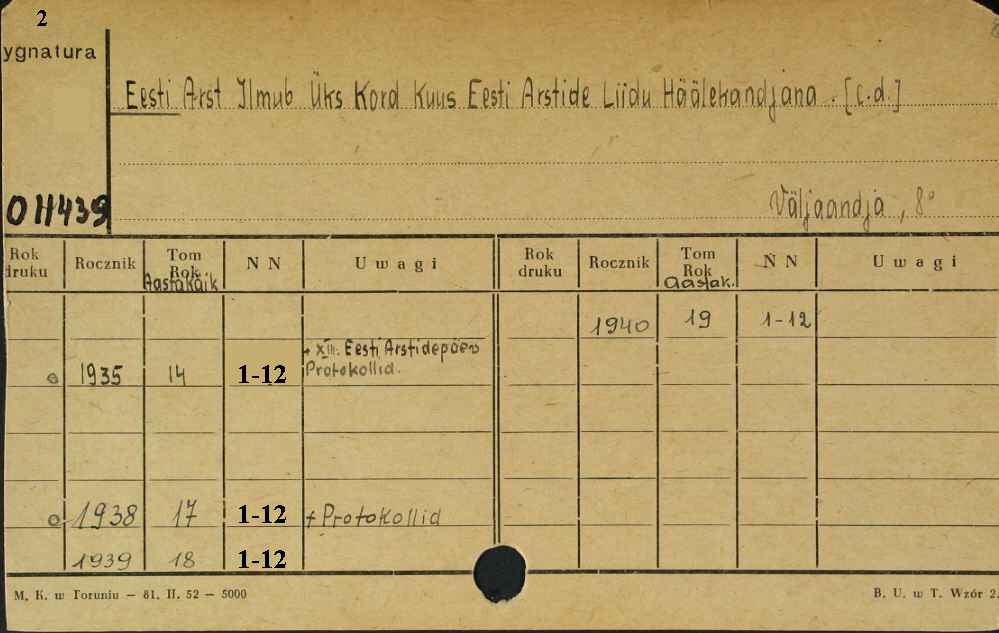 2
ygnatura
Eesti Arst Ilmub Üks Kord Kuus Eesti Arstide Liidu Häälekandjana. [c.d.]
O II 439
Väljaandja, 8°
Rok druku Rocznik Tom Rok Aastakäik N N Uwagi Rok druku Rocznik Tom Rok Aastak. N N Uwagi
1940 19 1-12
+ XIII. Eesti Arstidepäev
1935 14 1-12 Protokollid.
1938 17 1-12 + Protokollid
1939 18 1-12
M. K. w Toruniu — 81. II. 52 — 5000 B. U. w T. Wzór 2.